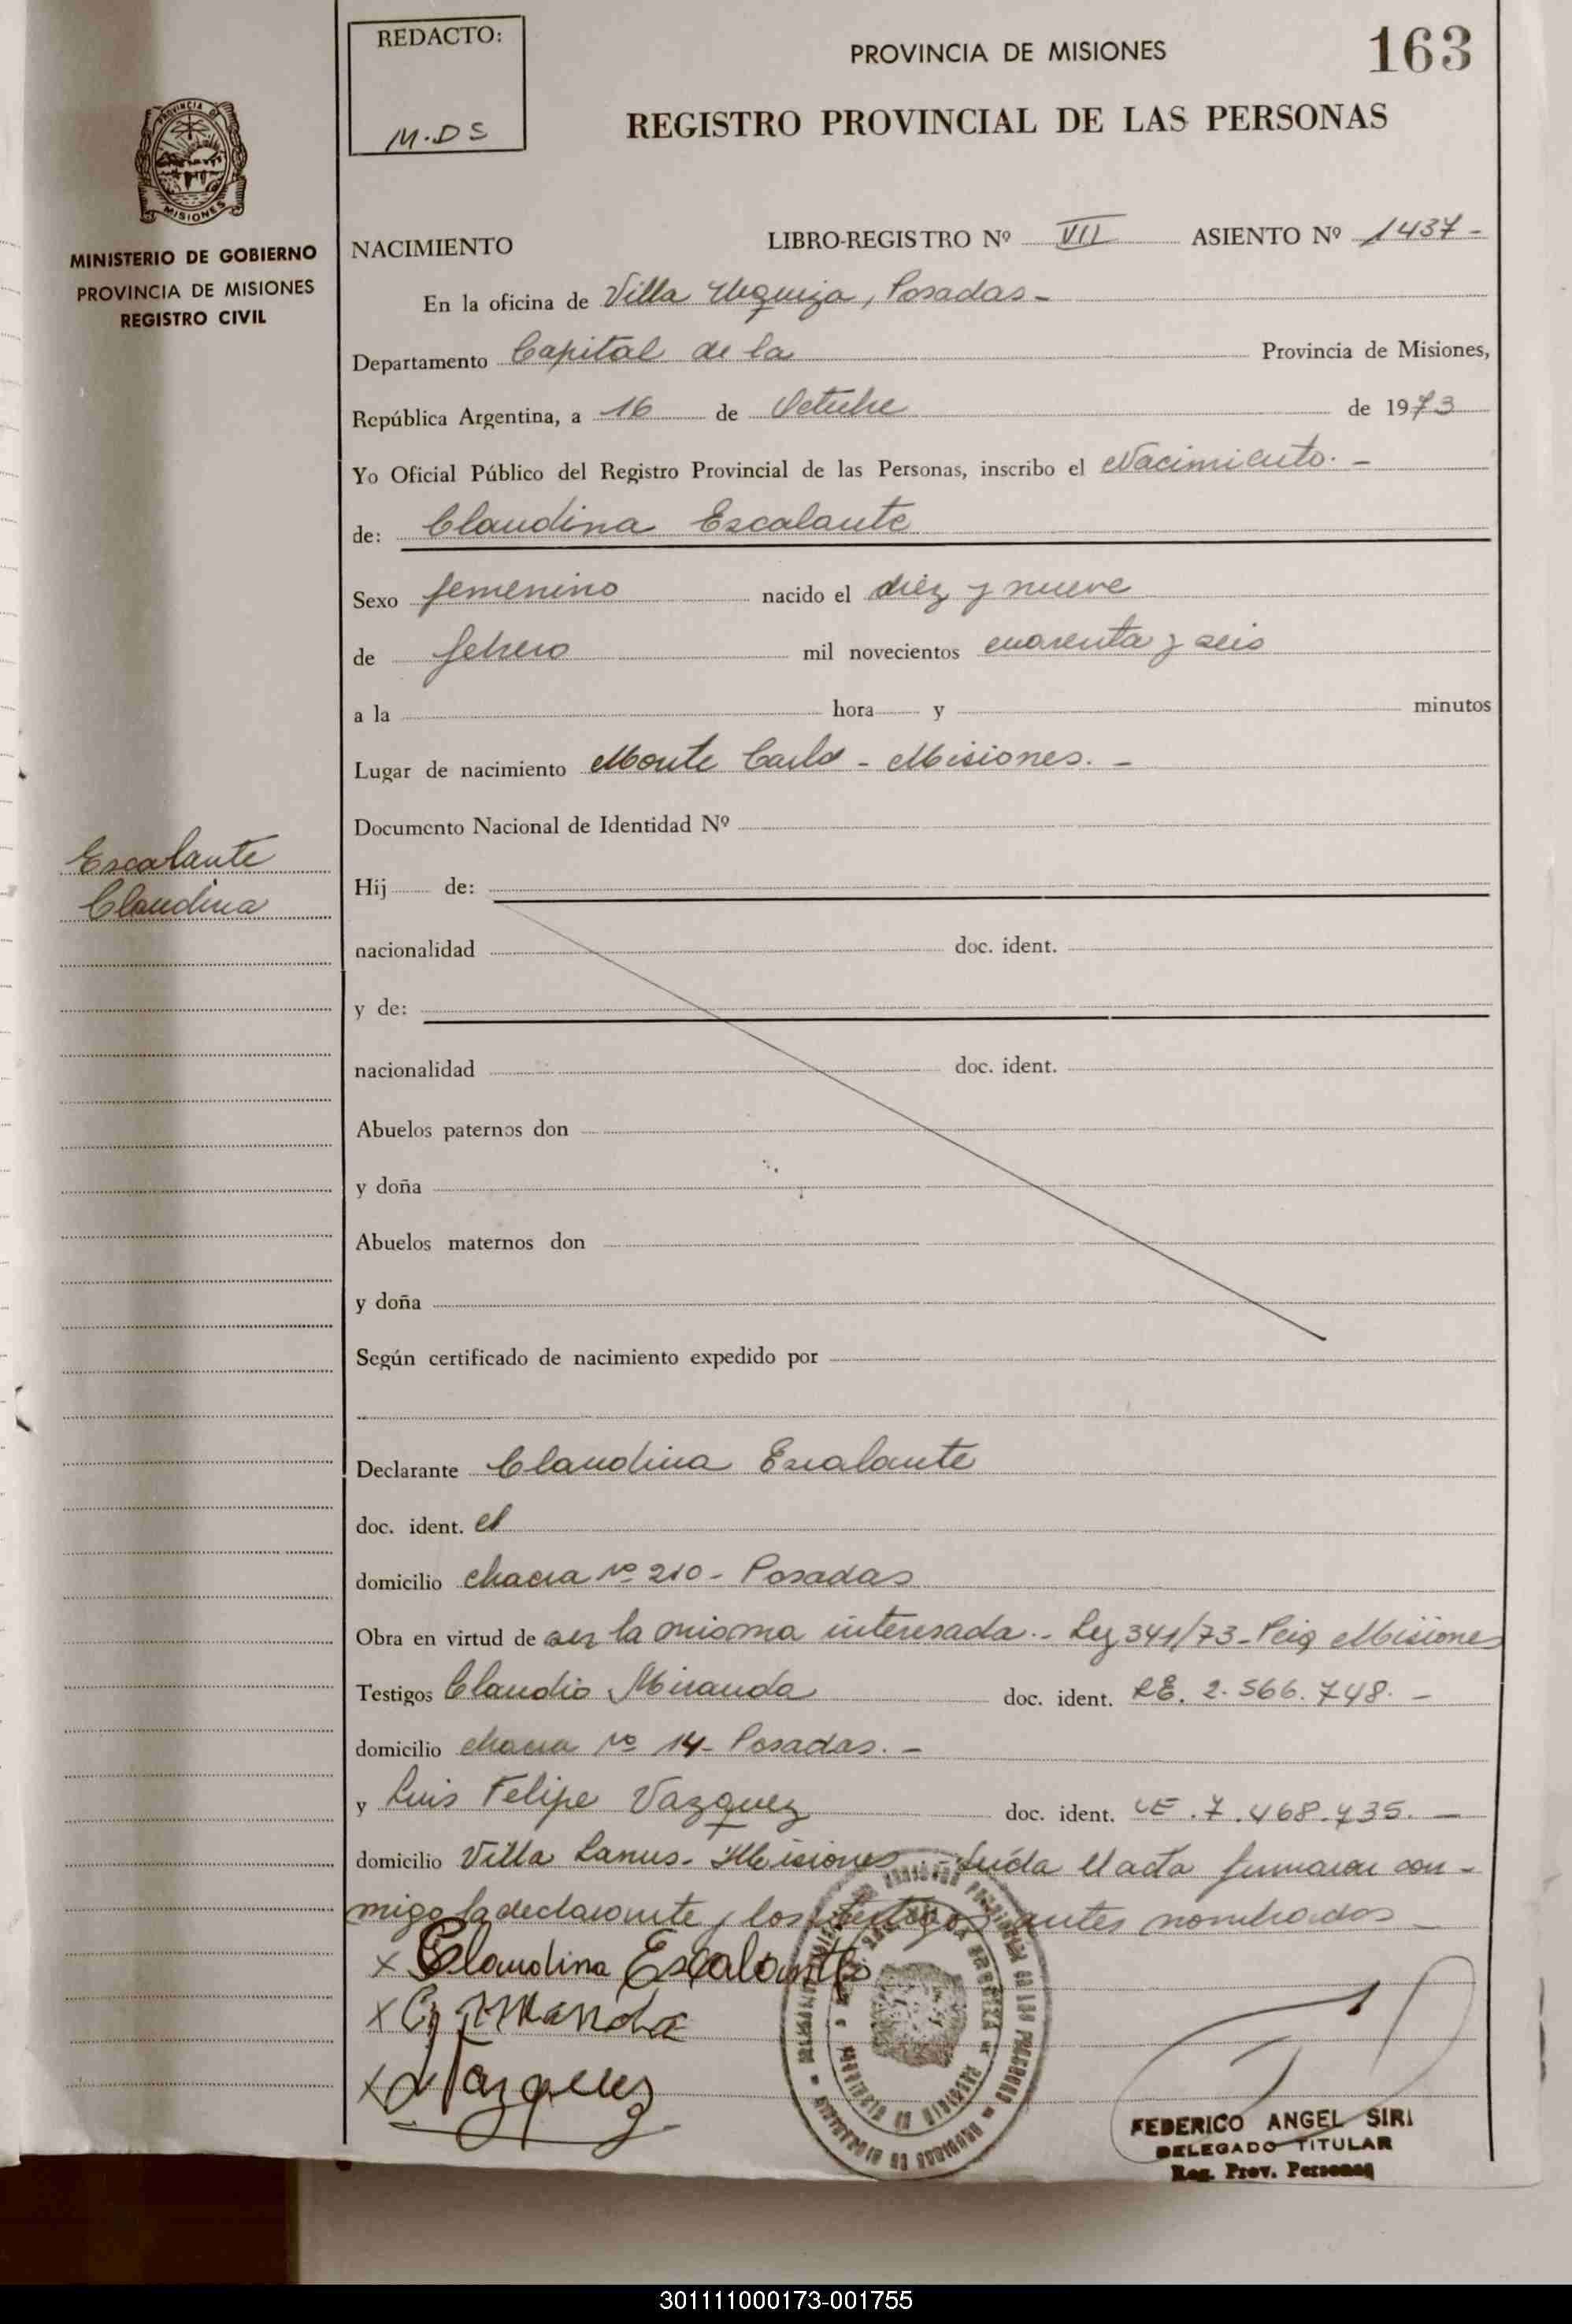 REDACTO:
M.DS
PROVINCIA DE MISIONES
163
REGISTRO PROVINCIAL DE LAS PERSONAS
PROVINCIA DE
MISIONES
MINISTERIO DE GOBIERNO
PROVINCIA DE MISIONES
REGISTRO CIVIL
NACIMIENTO LIBRO-REGISTRO Nº VII ASIENTO Nº 1437-
En la oficina de Villa Urquiza, Posadas-
Departamento Capital de la Provincia de Misiones,
República Argentina, a 16 de Octubre de 1973
Yo Oficial Público del Registro Provincial de las Personas, inscribo el Nacimiento. -
de: Claudina Escalante
Sexo femenino nacido el diez y nueve
de febrero mil novecientos cuarenta y seis
a la hora y minutos
Lugar de nacimiento Monte Carlo - Misiones. -
Documento Nacional de Identidad Nº
Escalante
Claudina
Hij de:
nacionalidad doc. ident.
y de:
nacionalidad doc. ident.
Abuelos paternos don
y doña
Abuelos maternos don
y doña
Según certificado de nacimiento expedido por
Declarante Claudina Escalante
doc. ident.
domicilio chacra nº 210 - Posadas
Obra en virtud de ser la misma interesada.- Ley 341/73- Misiones
Testigos Claudio Miranda doc. ident. 2.566.748. -
domicilio chacra nº 14- Posadas. -
y Luis Felipe Vazquez doc. ident. 7.468.735. -
domicilio Villa Lanus- Misiones Leída el acta firmaron con-
migo la declarante y los testigos antes nombrados -
x Claudina Escalante
x C. Miranda
x Vazquez
FEDERICO ANGEL SIRI
DELEGADO TITULAR
Reg. Prov. Personas
301111000173-001755